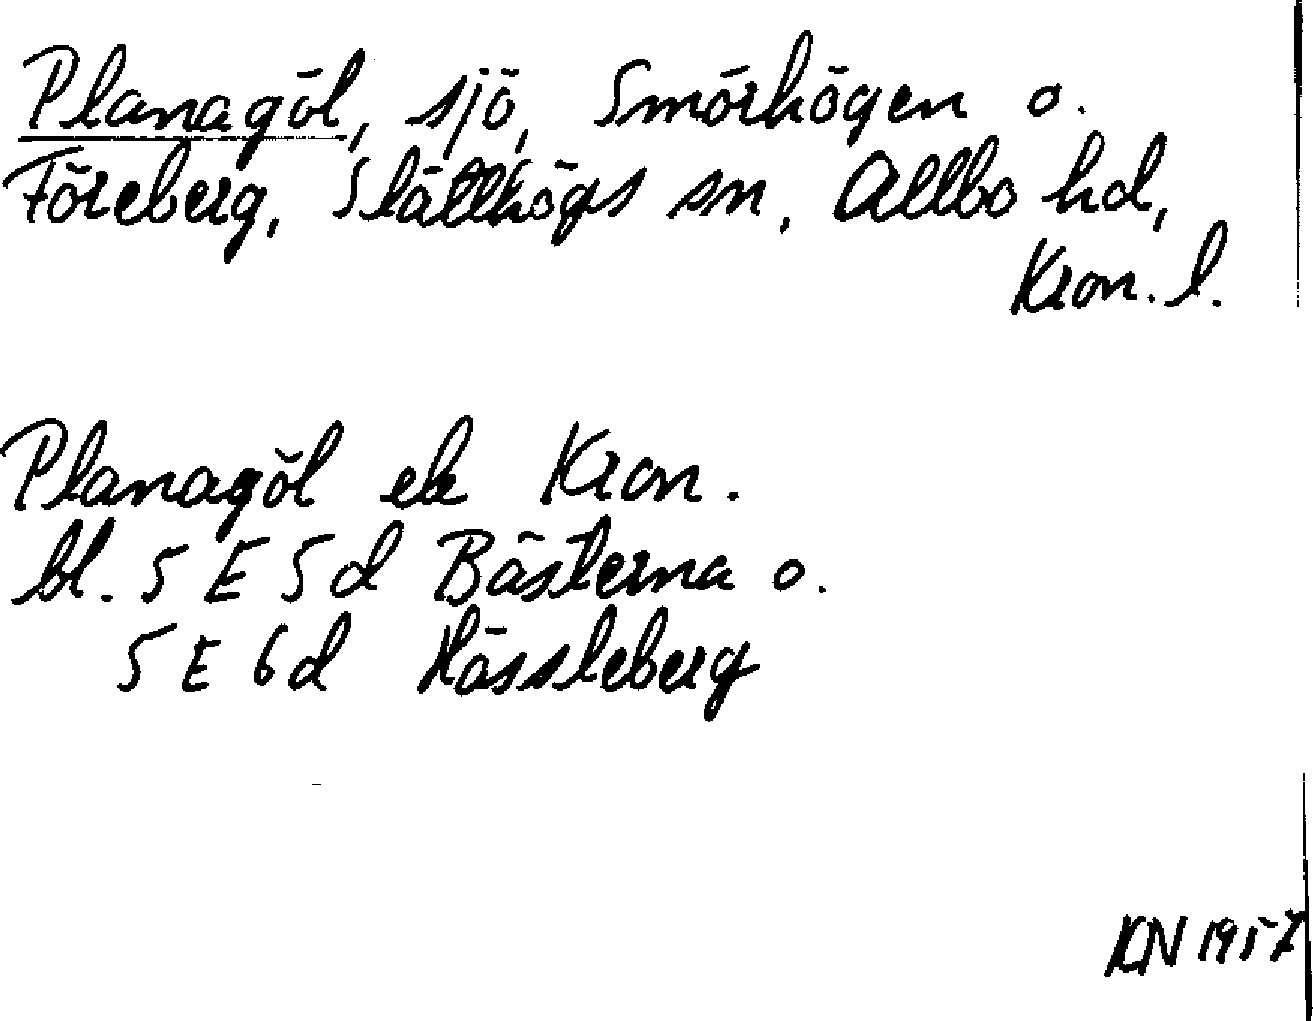 Planagöl, sjö, Smörhögen o.
Föreberg, Slätthögs sn, Allbo hd,
Kron. l.
Planagöl ek Kron.
bl. 5 E 5 d Bästerna o.
5 E 6 d Hässleberg
KN 1957